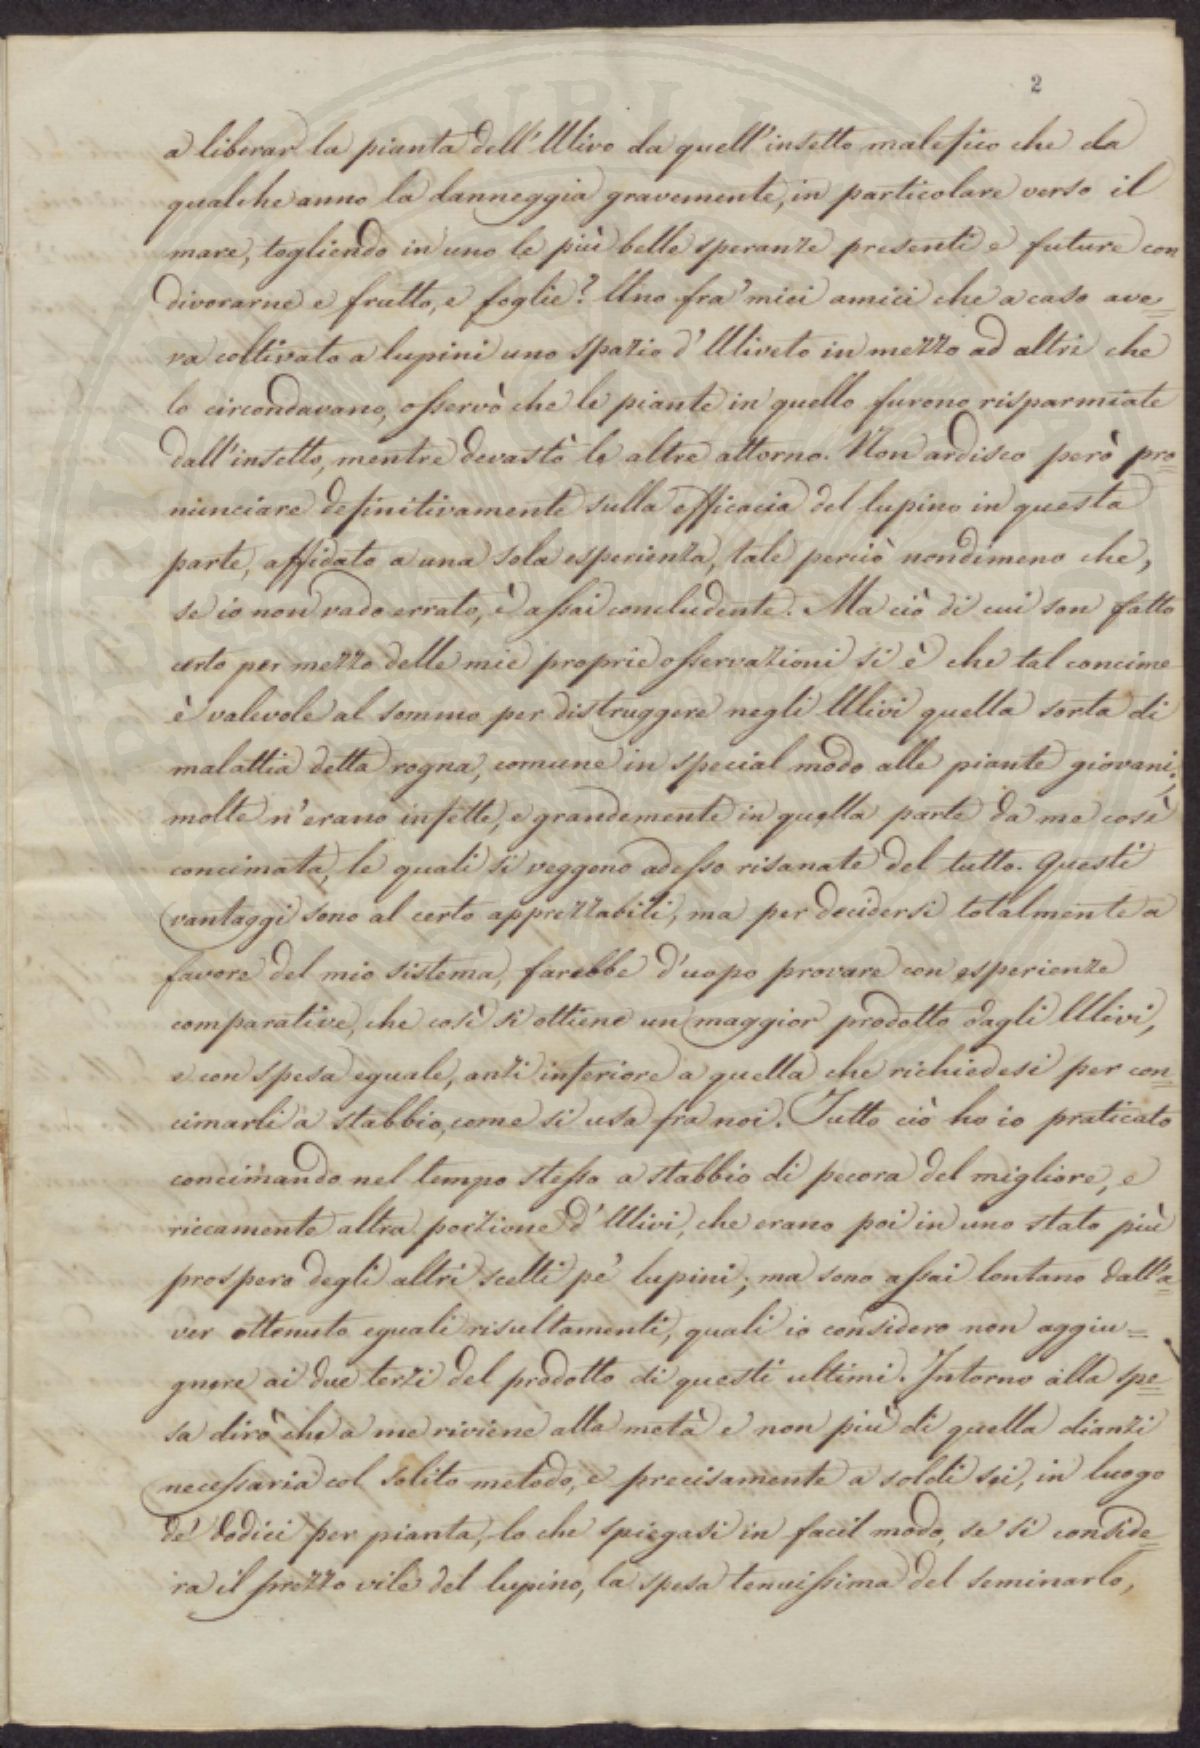 2
a liberar la pianta dell'Ulivo da quell'insetto malefico che da
qualche anno la danneggia gravemente, in particolare verso il
mare, togliendo in uno le più belle speranze presenti e future con
divorarne e frutto, e foglie? Uno fra' miei amici che a caso ave=
va coltivato a lupini uno spazio d'Uliveto in mezzo ad altri che
lo circondavano, osservò che le piante in quello furono risparmiate
dall'insetto, mentre devastò le altre attorno. Non ardisco però pro=
nunciare definitivamente sulla efficacia del lupino in questa
parte, affidato a una sola esperienza, tale perciò nondimeno che,
se io non vado errato, è assai concludente. Ma ciò di cui son fatto
certo per mezzo delle mie proprie osservazioni si è che tal concime
è valevole al sommo per distruggere negli Ulivi quella sorta di
malattia detta rogna, comune in special modo alle piante giovani;
molte n'erano infette, e grandemente in quella parte da me così
concimata, le quali si veggono adesso risanate del tutto. Questi
vantaggi sono al certo apprezzabili, ma per decidersi totalmente a
favore del mio sistema, farebbe d'uopo provare con esperienze
comparative, che così si ottiene un maggior prodotto dagli Ulivi,
e con spesa eguale, anzi inferiore a quella che richiedesi per con=
cimarli a stabbio, come si usa fra noi. Tutto ciò ho io praticato
concimando nel tempo stesso a stabbio di pecora del migliore, e
riccamente altra porzione d'Ulivi, che erano poi in uno stato più
prospero degli altri scelti pe' lupini; ma sono assai lontano dall'a=
ver ottenuto eguali risultamenti, quali io considero non aggiu=
gnere ai due terzi del prodotto di questi ultimi. Intorno alla spe=
sa dirò che a me riviene alla metà e non più di quella dianzi
necessaria col solito metodo, e precisamente a soldi sei, in luogo
de' dodici per pianta, lo che spiegasi in facil modo, se si conside=
ra il prezzo vile del lupino, la spesa tenuissima del seminarlo,